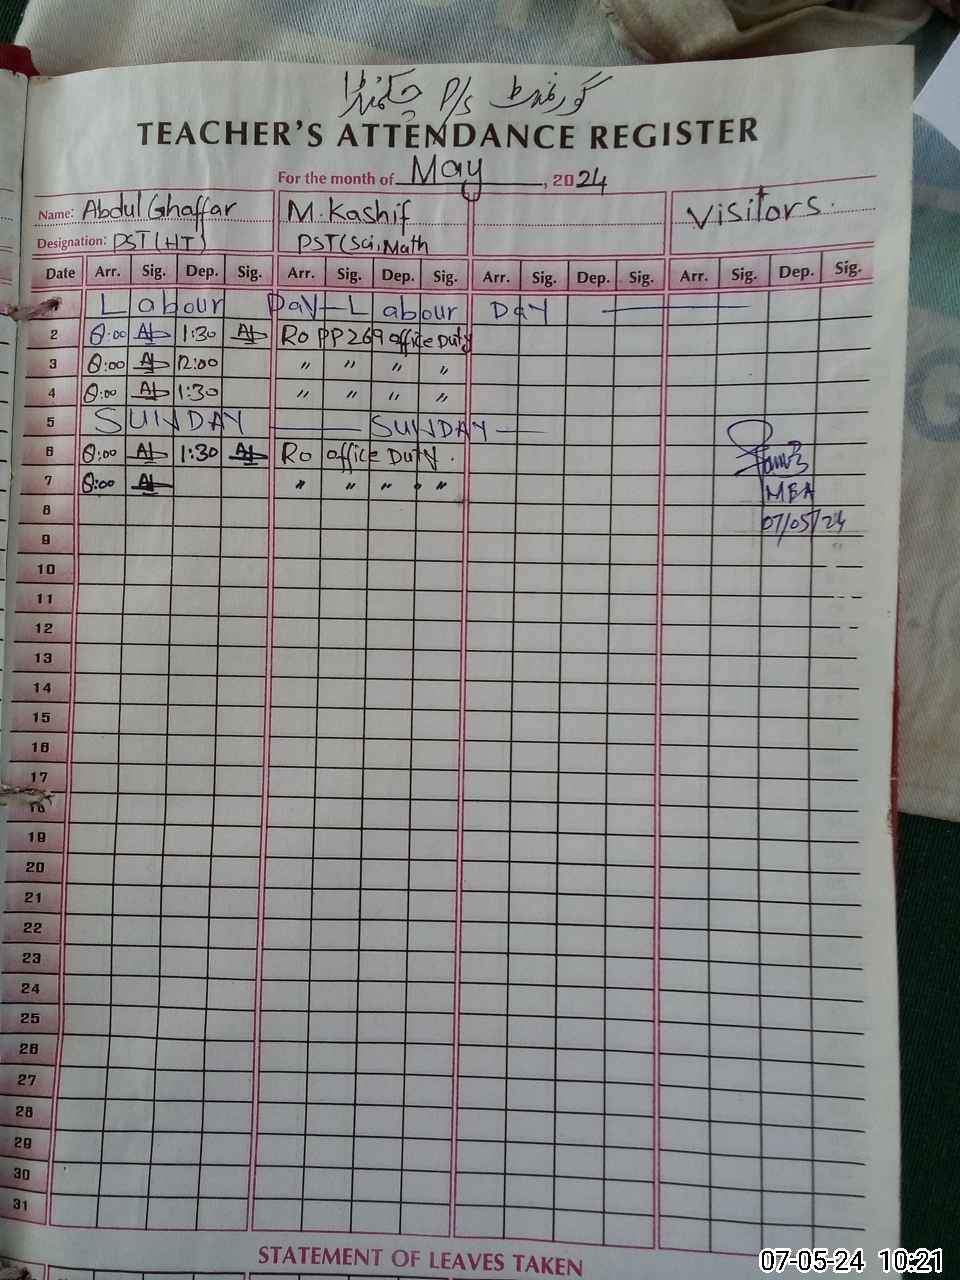 گورنمنٹ P/S
TEACHER'S ATTENDANCE REGISTER
For the month of May, 2024
Name: Abdul Ghaffar M. Kashif Visitors
Designation: PST(HT) PST(Sci, Math
Date Arr. Sig. Dep. Sig. Arr. Sig. Dep. Sig. Arr. Sig. Dep. Sig. Arr. Sig. Dep. Sig.
Labour Day - Labour Day
2 8:00 1:30 Ro PP 269 office Duty
3 8:00 12:00 " " " "
4 8:00 1:30 " " " "
5 SUNDAY SUNDAY
6 8:00 1:30 Ro office Duty.
7 8:00 " " " "
MEA
8
07/05/24
9
10
11
12
13
14
15
16
17
18
19
20
21
22
23
24
25
26
27
28
29
30
31
STATEMENT OF LEAVES TAKEN
07-05-24 10:21